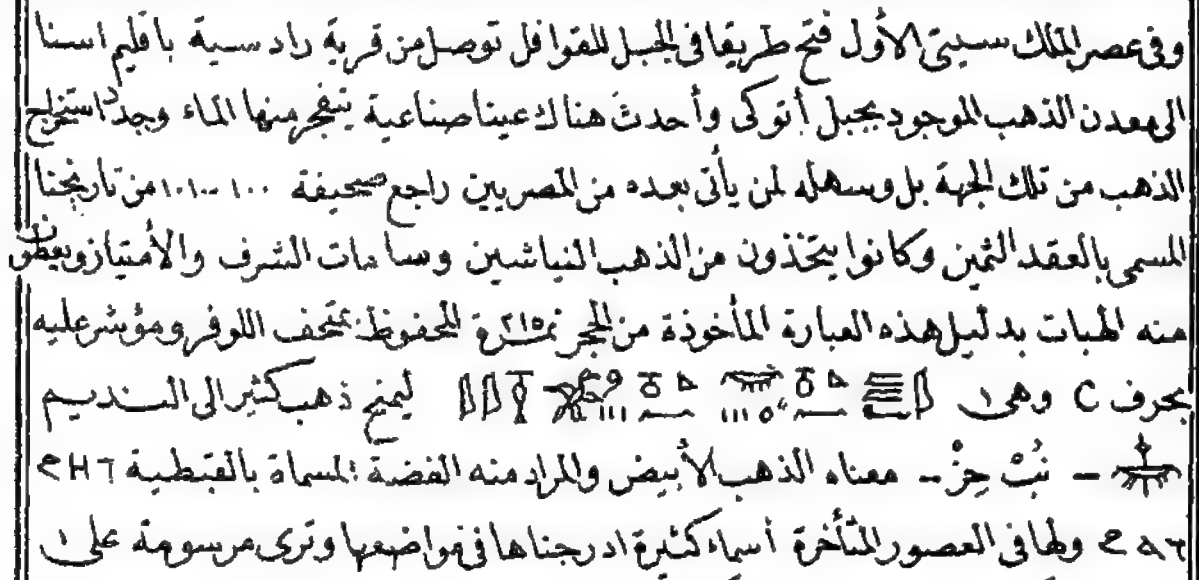 وفى عصر الملك سيتى الأول فتح طريقا فى الجبل للقوافل توصل من قرية رادسية باقليم اسنا
الى معدن الذهب الموجود بجبل أتوكى وأحدث هناك عينا صناعية يتفجر منها الماء وجدد استخراج
الذهب من تلك الجهة بل وسهله لمن يأتى بعده من المصريين راجع صحيفة ١٠٠ - ١٠١ من تاريخنا
المسمى بالعقد الثمين وكانوا يتخذون من الذهب النياشين وسامات الشرف والأمتياز ويعطون
منه الهبات بدليل هذه العبارة المأخوذة من الحجر نمرة ٢١٥ المحفوظ بمتحف اللوفر ومؤشر عليه
بحرف C وهى ليمنح ذهب كثير الى النديم
– نُبْ حِزْ – معناه الذهب الأبيض والمراد منه الفضة المسماة بالقبطية
ولها فى العصور المتأخرة أسماء كثيرة ادرجناها فى مواضعها وترى مرسومة على